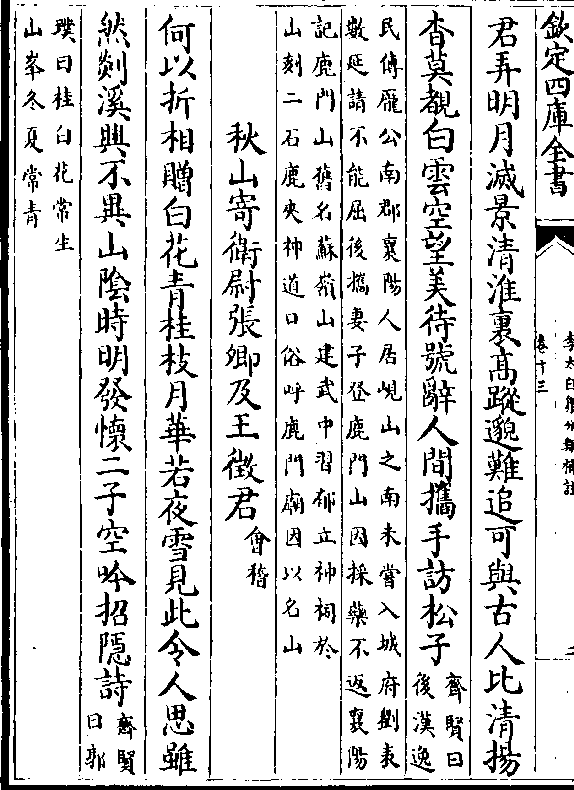 欽定四庫全書
李太白集分類補註
卷十三
君弄明月滅景清淮裏髙蹤邈難追可與古人比清揚
杳莫覩白雲空望美待號辭人間攜手訪松子
齊賢曰
後漢逸
民傳龎公南郡襄陽人居峴山之南未嘗入城府劉表
數延請不能屈後攜妻子登鹿門山因採藥不返襄陽
記鹿門山舊名蘇嶺山建武中習郁立神祠於
山刻二石鹿夾神道口俗呼鹿門廟因以名山
秋山寄衛尉張卿及王徵君
會稽
何以折相贈白花青桂枝月華若夜雪見此令人思雖
然剡溪興不異山陰時明發懷二子空吟招隱詩
齊賢
曰郭
璞曰桂白花常生
山峯冬夏常青